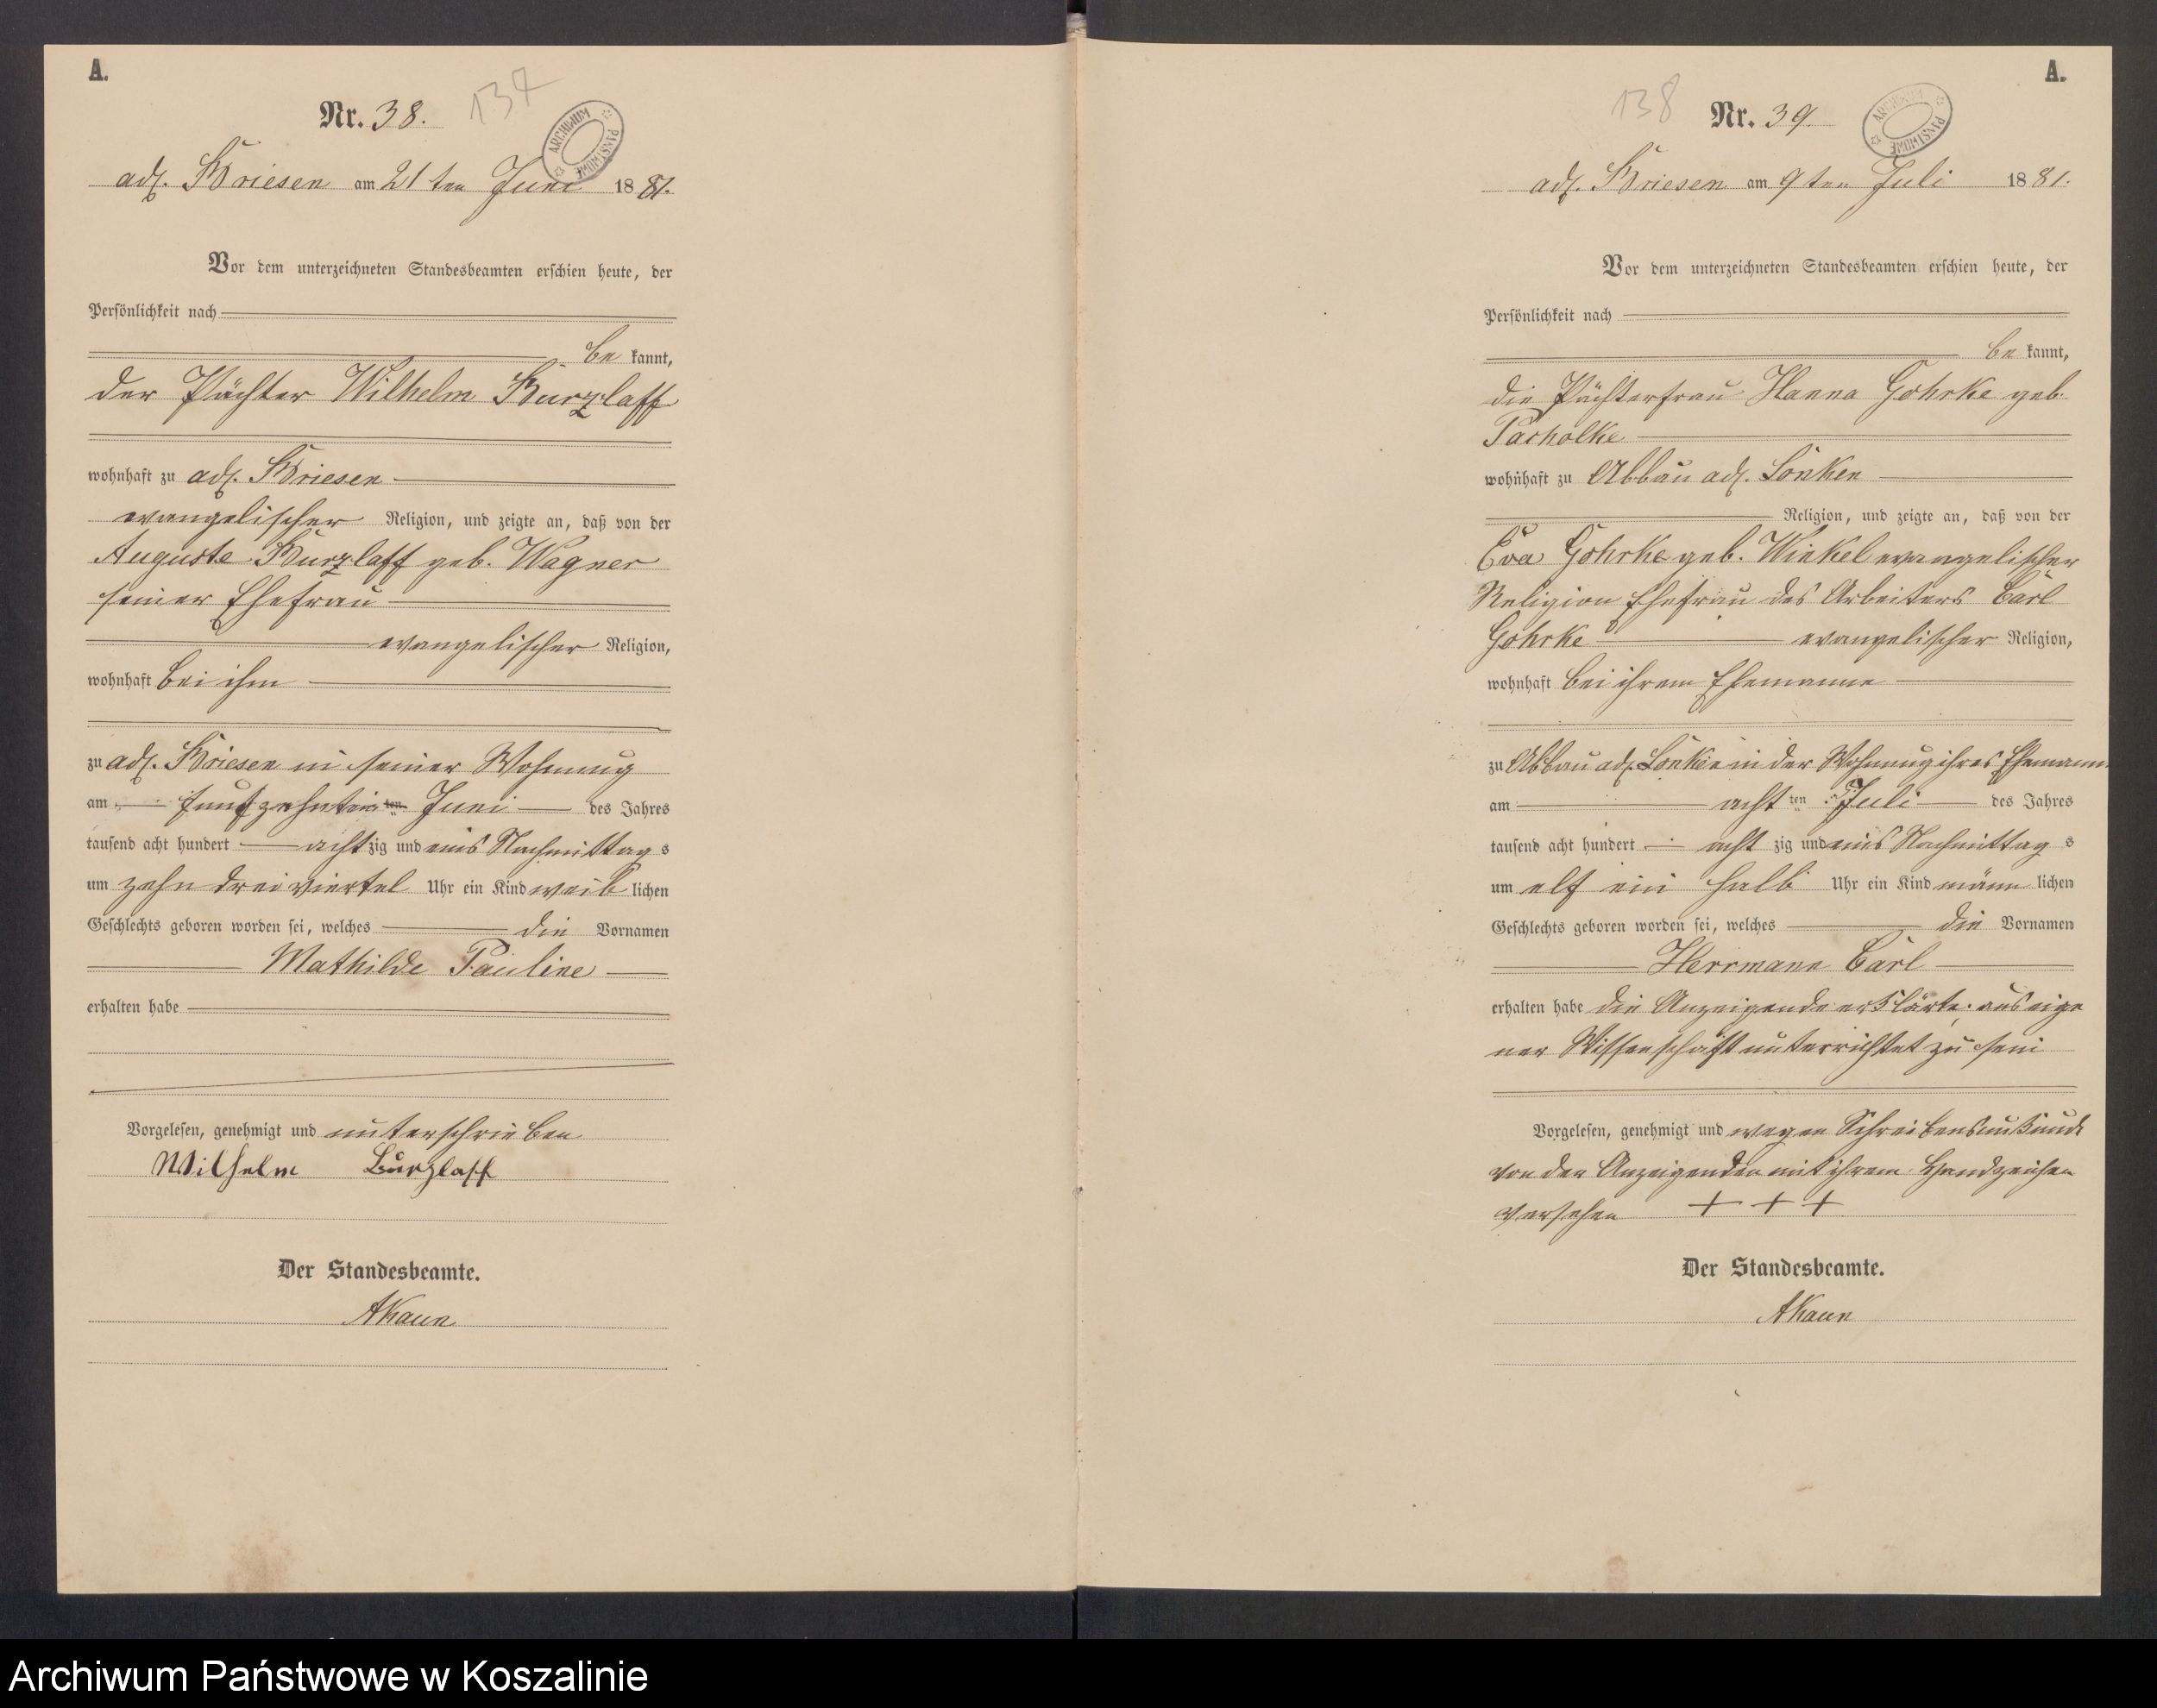 A.
Nr. 38.
137
ARCHIWUM PAŃSTWOWE
adl. Briesen am 21ten Juni 1881.
Vor dem unterzeichneten Standesbeamten erschien heute, der
Persönlichkeit nach
be kannt,
der Pächter Wilhelm Burzlaff
wohnhaft zu adl. Briesen
evangelischer Religion, und zeigte an, daß von der
Auguste Burzlaff geb. Wagner
seiner Ehefrau
evangelischer Religion,
wohnhaft bei ihm
zu adl. Briesen in seiner Wohnung
am funfzehnten ten Juni des Jahres
tausend acht hundert acht zig und eins Nachmittag s
um zehn drei viertel Uhr ein Kind weib lichen
Geschlechts geboren worden sei, welches die Vornamen
Mathilde Pauline
erhalten habe
Vorgelesen, genehmigt und unterschrieben
Wilhelm Burzlaff
Der Standesbeamte.
AKaun
A.
138
Nr. 39.
ARCHIWUM PAŃSTWOWE
adl. Briesen am 9ten Juli 1881.
Vor dem unterzeichneten Standesbeamten erschien heute, der
Persönlichkeit nach
be kannt,
die Pächterfrau Hanna Gohrke geb.
Pacholke
wohnhaft zu Abbau adl. Lonken
Religion, und zeigte an, daß von der
Eva Gohrke geb. Winkel evangelischer
Religion Ehefrau des Arbeiters Carl
Gohrke evangelischer Religion,
wohnhaft bei ihrem Ehemanne
zu Abbau adl. Lonken in der Wohnung ihres Ehemann.
am acht ten Juli des Jahres
tausend acht hundert acht zig und eins Nachmittag s
um elf ein halb Uhr ein Kind männ lichen
Geschlechts geboren worden sei, welches die Vornamen
Herrmann Carl
erhalten habe die Anzeigende erklärte, aus eige
ner Wissenschaft unterrichtet zu sein
Vorgelesen, genehmigt und wegen Schreibensunkunde
von der Anzeigenden mit ihrem Handzeichen
versehen + + +
Der Standesbeamte.
AKaun
Archiwum Państwowe w Koszalinie